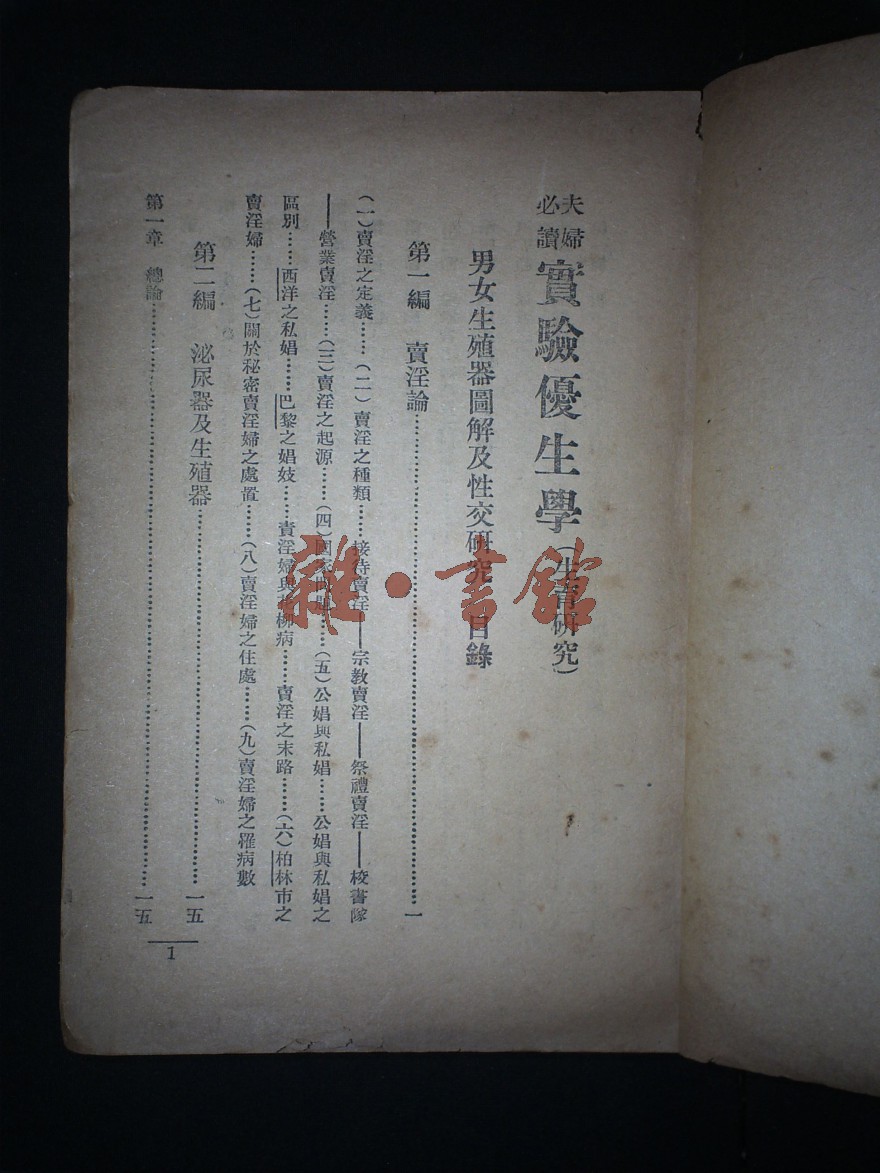 夫婦必讀 實驗優生學(生育研究)
男女生殖器圖解及性交研究 目錄
第一編 賣淫論……一
(一)賣淫之定義……(二)賣淫之種類……接待賣淫——宗教賣淫——祭禮賣淫——校書隊
——營業賣淫……(三)賣淫之起源……(四)國家問題……(五)公娼與私娼……公娼與私娼之
區別……西洋之私娼……巴黎之娼妓……賣淫婦與花柳病……賣淫之末路……(六)柏林市之
賣淫婦……(七)關於秘密賣淫婦之處置……(八)賣淫婦之住處……(九)賣淫婦之罹病數
第二編 泌尿器及生殖器……一五
第一章 總論……一五
1
雜·書館